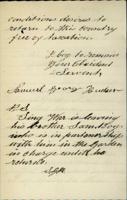 conditions desires to
return to this country
free of taxation.
I beg to remain
Your Obedient
Servant
Samuel George
P.S.
Tong War is leaving
his brother
who is in partnership
with him in the Garden
in charge untill he
returns.